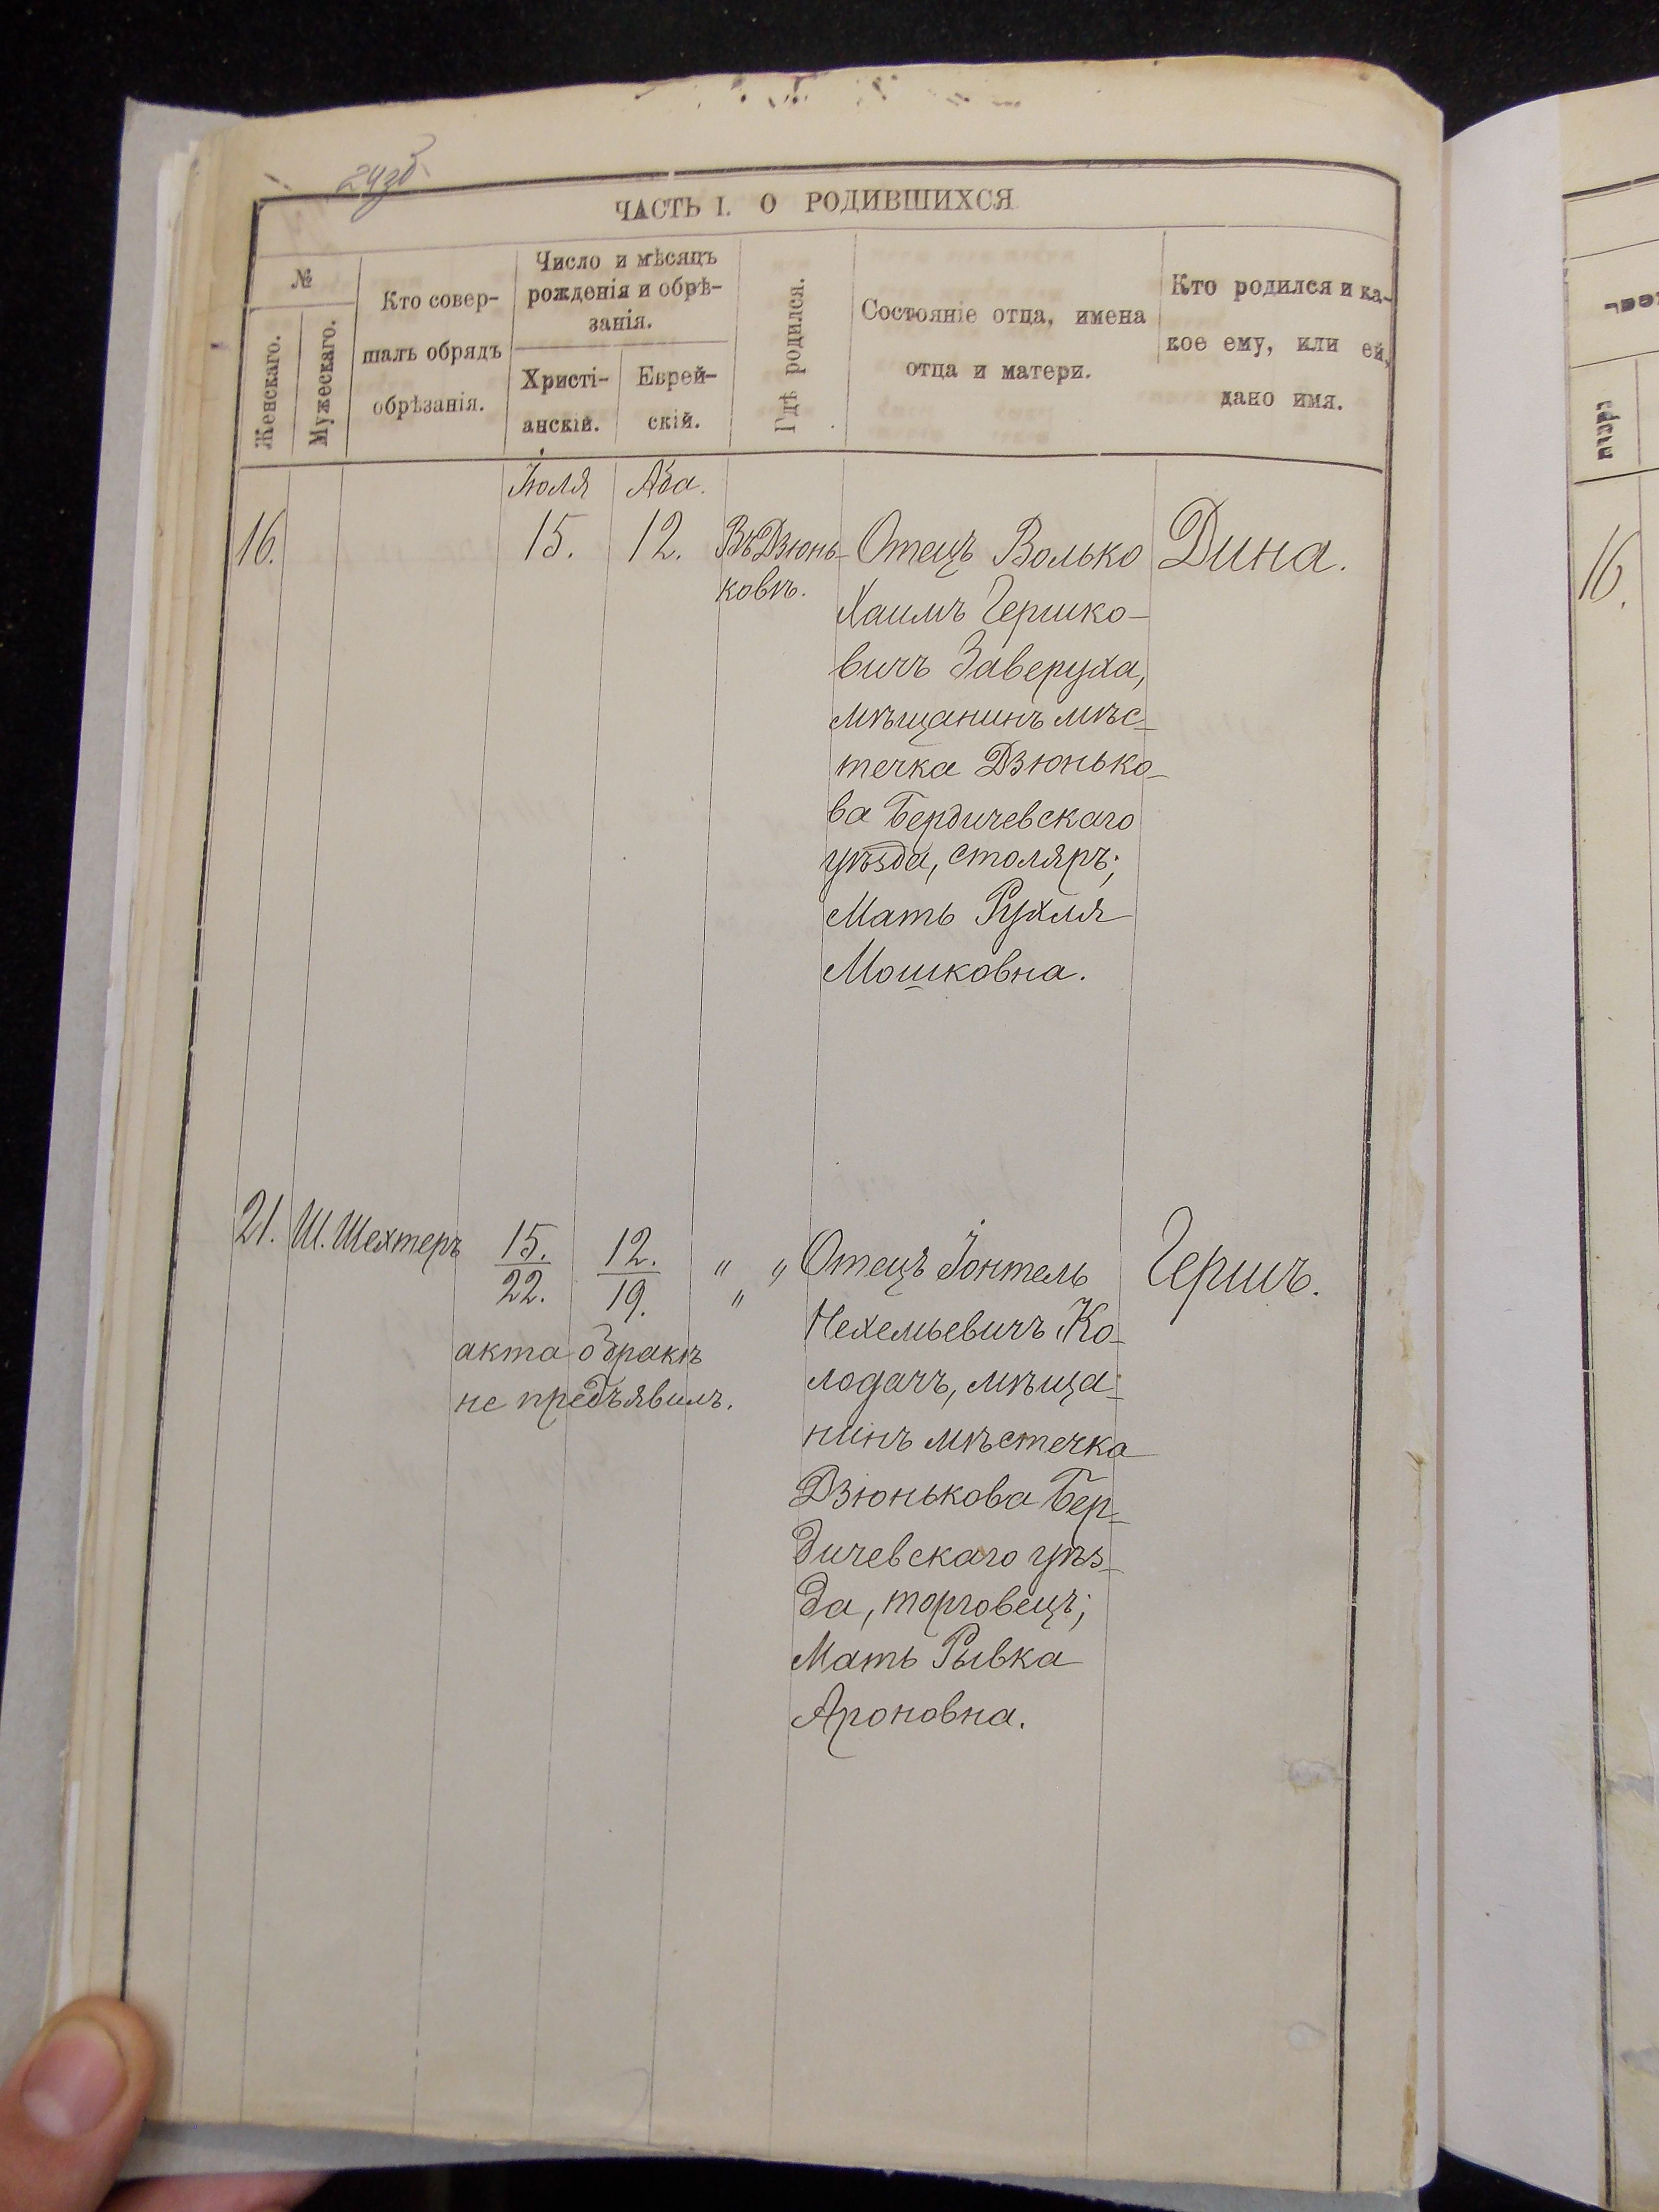 24об
ЧАСТЬ I. О РОДИВШИХСЯ
№
Женскаго.
Мужескаго.
Кто совер-
шалъ обрядъ
обрѣзанія.
Число и мѣсяцъ
рожденія и обрѣ-
занія.
Христі-
анскій.
Еврей-
скій.
Гдѣ родился.
Состояніе отца, имена
отца и матери.
Кто родился и ка-
кое ему, или ей,
дано имя.
Іюля Ава.
16. 15. 12. Въ Дзюнь-
ковѣ.
Отецъ Волько
Хаимъ Гершко-
вичъ Заверуха,
мѣщанинъ мѣс-
течка Дзюнько-
ва Бердичевскаго
уѣзда, столяръ;
Мать Рухля
Мошковна.
Дина.
16.
21. Ш. Шехтеръ 15. 12. " "
22. 19. "
акта о бракѣ
не предъявилъ.
Отецъ Іонтель
Нехемьевичъ Ко-
лодачъ, мѣща-
нинъ мѣстечка
Дзюнькова Бер-
дичевскаго уѣз-
да, торговецъ;
Мать Рывка
Ароновна.
Гершъ.